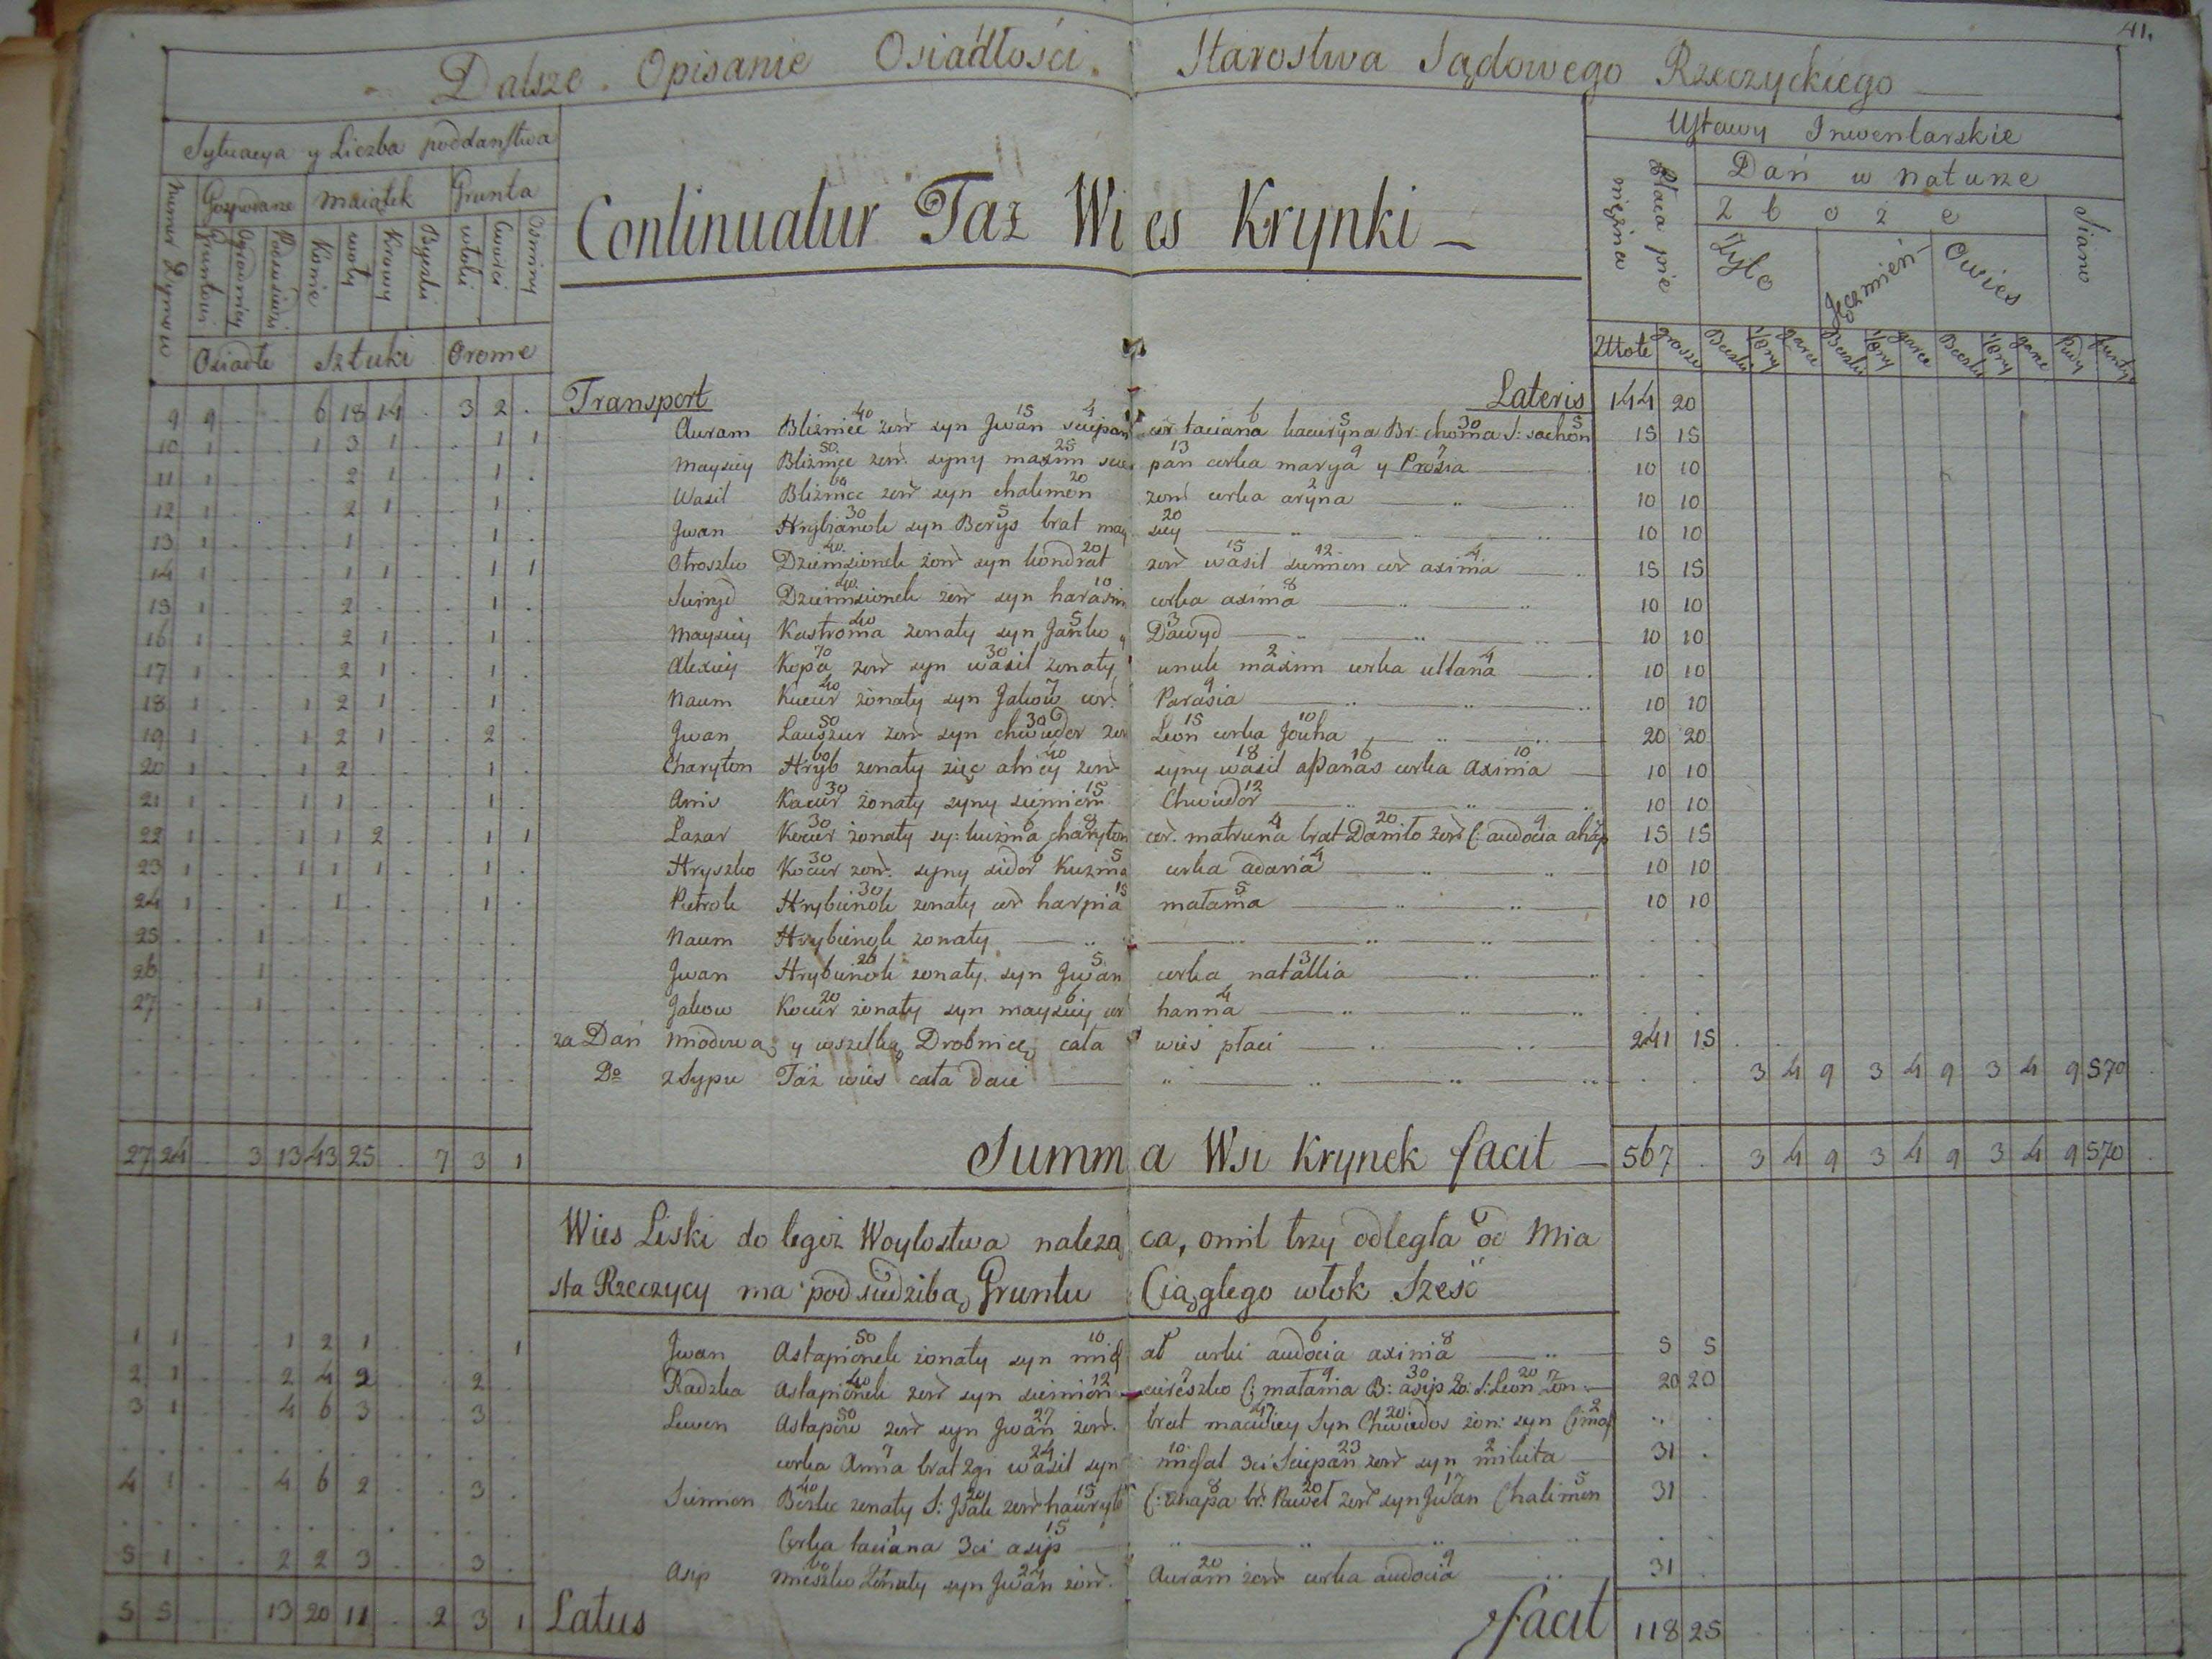 41.
Dalsze Opisanie Osiadłości Starostwa Sądowego Rzeczyckiego
Sytuacya y Liczba poddaństwa
Ustawy Inwentarskie
Numer Dymow
Gospodarze
maiątek
Grunta
Gruntowi
Ogrodnicy
Konie
woły
Krowy
włoki
Osminy
Osiadłe Sztuki Orome
Continuatur Taż Wies Krynki
Płaca pie
niężna
Dań w naturze
Zboże
Siano
Żyto
Jęczmień
Owies
Złłote grosze Beczki garce Beczki garce Beczki garce Pudy funty
9 9 . . 6 18 14 . 3 2 . Transport Lateris 144 20
10 1 . . 1 3 1 . . 1 1 Auram Bliźniec 40 żon syn Jwan 15 sciepan 4 cór taciana 6 hauryna 5 Br: choma 30 S: sachon 5 15 15
11 1 . . . 2 1 . . 1 . Maysiey Bliźniec 50 żon. syny maxim 25 scie pan 13 corka marya 9 y Prosia 7 10 10
12 1 . . . 2 1 . . 1 . Wasil Bliźniec 60 żon syn chalimon 20 żon corka aryna 2 10 10
13 1 . . . 1 . . . 1 . Jwan Hrybianok 30 syn Borys 5 brat may siey 20 10 10
14 1 . . . 1 1 . . 1 1 Otroszko Dziemsionek 40 żon syn kondrat 20 żon wasil 15 siemion 12 cor axinia 4 15 15
15 1 . . . 2 . . . 1 . Dziemsionek 40 żon syn harasim 10 corka axinia 8 10 10
16 1 . . . 2 1 . . 1 . Maysiey Kastroma 40 żonaty syn Janko 5 y Dawyd 3 10 10
17 1 . . . 2 1 . . 1 . Alexiey Kopa 70 żon syn wasil 30 żonaty wnuk maxim 2 corka ullana 4 10 10
18 1 . . 1 2 1 . . 1 . Naum Kucur 40 żonaty syn Jakow 7 cor. Parasia 9 10 10
19 1 . . 1 2 1 . . 2 . Jwan 50 żon syn chwiedor 30 żon Leon 15 corka Jouha 10 20 20
20 1 . . 1 2 . . . 1 . Charyton Hryb 60 żonaty zięć 40 żon syny wasil 18 apanas 16 corka Axinia 10 10 10
21 1 . . 1 1 . . . 1 . Kacur 30 żonaty syny siemion 15 Chwiedor 12 10 10
22 1 . . 1 1 2 . . 1 1 Lazar Kocur 30 żonaty sy: kuzma 6 charyton 8 cor. matruna 4 brat Daniło 20 żon C: audocia 9 ahap 15 15
23 1 . . 1 1 1 . . 1 . Hryszko Kocur 30 żon. syny sidor 6 Kuzma 5 corka adaria 4 10 10
24 1 . . . 1 . . . 1 . Pietrok Hrybienok 30 żonaty cor harpia 15 matama 5 10 10
25 . . 1 . . . . . . . Naum Hrybienok żonaty
26 . . 1 . . . . . . . Jwan Hrybienok 20 żonaty syn Jwan 5 corka natallia 3
27 . . 1 . . . . . . . Jakow Kocur 20 żonaty syn maysiey 6 cor hanna 4
za Dań Miodową y wszelką Drobnicę cała wieś płaci 241 15
Do zSypu Taż wieś cała daie 3 4 9 3 4 9 3 4 9 570
27 24 . 3 13 43 25 . 7 3 1 Summa Wsi Krynek facit 567 . 3 4 9 3 4 9 3 4 9 570
Wies Liski do tegoż Woytostwa należąca, o mil trzy odległa od Mia
sta Rzeczycy ma pod siedzibą Gruntu Ciągłego włok Sześć
1 1 . . 1 2 1 . . . 1 Jwan Astapionek 50 żonaty syn mich 10 ał corki audocia 6 axinia 8 5 5
2 1 . . 2 4 2 . . 2 . Radzka Astapionek 40 żon syn siemion 12 cireszko 7 C: matama 9 B: asip 30 S: Leon 20 20 20
3 1 . . 4 6 3 . . 3 . Lewon Astapow 50 żon syn Jwan 27 żon. brat maciwiey Syn Chwiedos 20 żon: syn
corka Anna 7 brat 2gi wasil 24 syn michał 10 3ci Sciepan 23 żon syn mikita 2 31
4 1 . . 4 6 2 . . 3 . Siemion 40 żonaty S: Jsak 20 żon hawryło 15 C: ahapa 8 br: Paweł 20 żon syn Jwan 17 Chalimon 5 31
Corka taciana 3ci asip 15
5 1 . . 2 2 3 . . 3 . Asip mieszko 60 żonaty syn Jwan 24 żon. Auram 20 żon corka audocia 9 31
5 5 . . 13 20 11 . 2 3 1 Latus facit 118 25